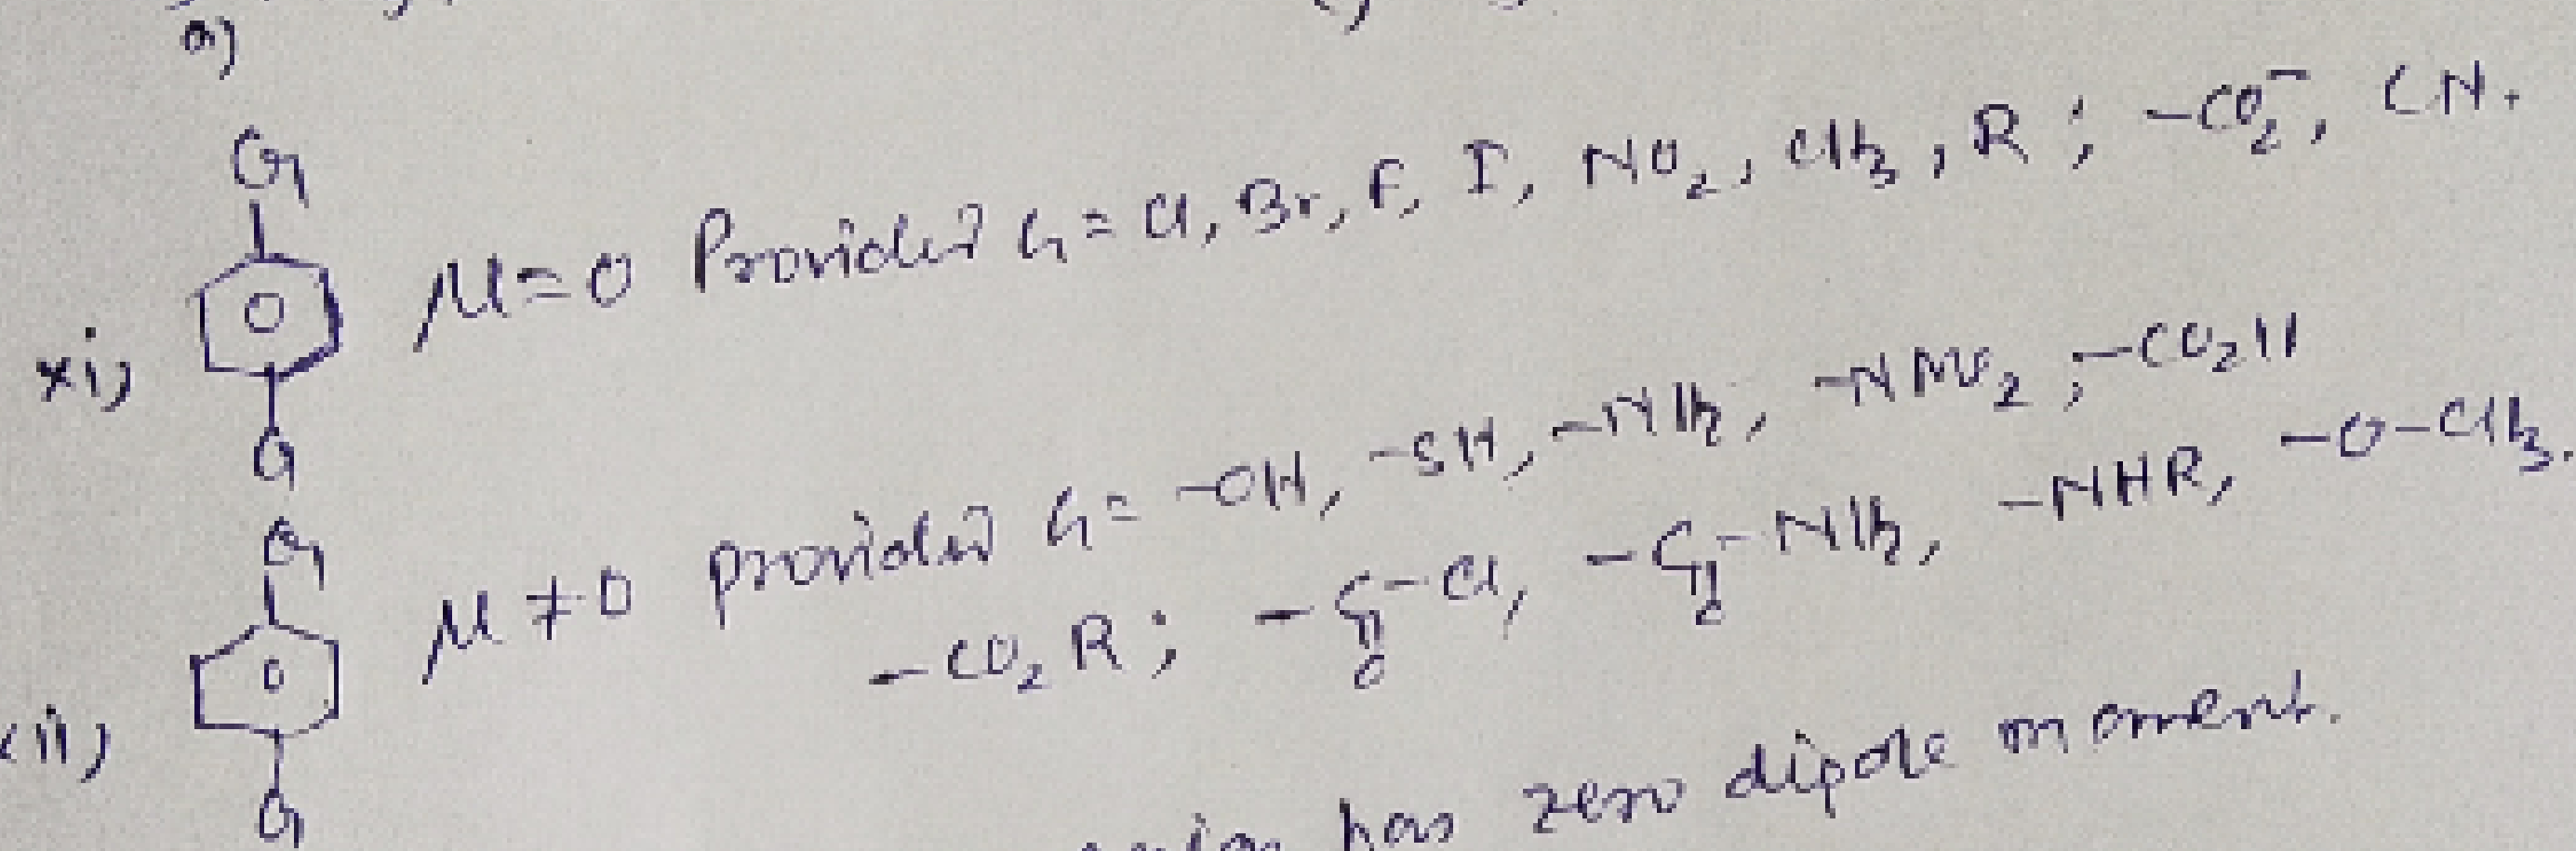 a)
G
xi) μ = 0 Provided G = Cl, Br, F, I, NO₂, CH₃, R ; -CO₂⁻, CN.
G
G
xii) μ ≠ 0 provided G = -OH, -SH, -NH₂, -NMe₂ ; -CO₂H
-CO₂R ; -C(=O)-Cl, -C(=O)-NH₂, -NHR, -O-CH₃.
G
has zero dipole moment.